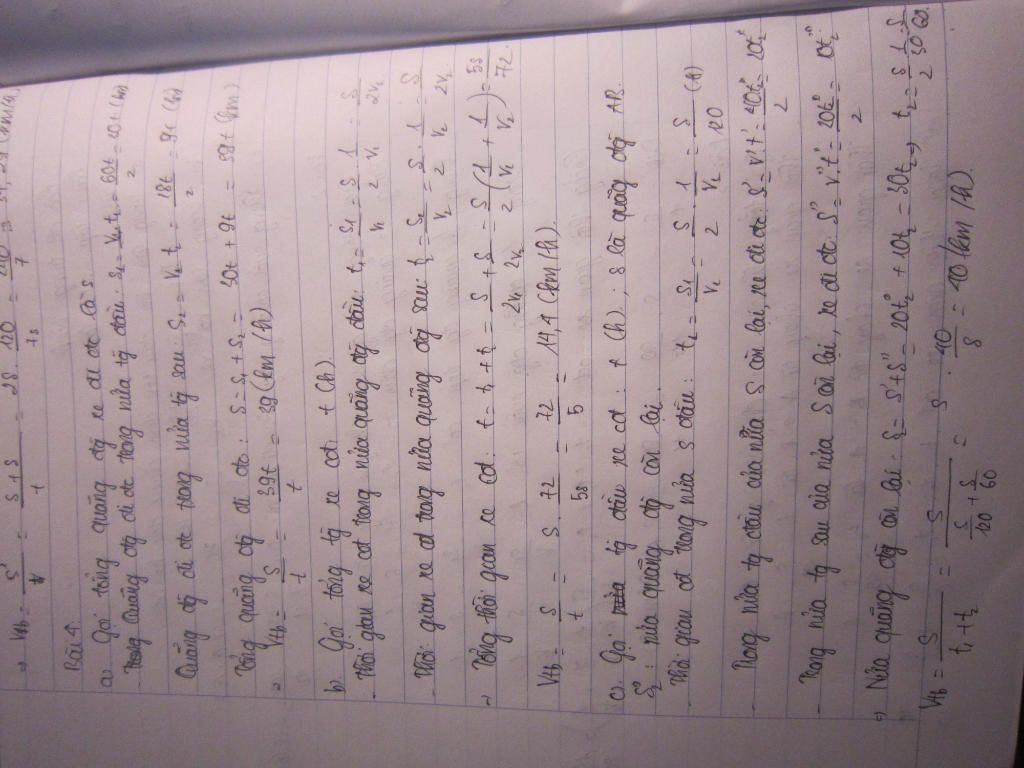 → Vtb = S' / t = S + S / t = 2S . 120 / 7s = 240 / 7 ≈ 34,29 (km/h)
Bài 4
a) Gọi tổng quãng đg xe đi đc là S.
Trong quãng đg đi đc trong nửa tg đầu: S1 = V1 t1 = 60t / 2 = 30t (km)
Quãng đg đi đc trong nửa tg sau: S2 = V2 t = 18t / 2 = 9t (km)
Tổng quãng đg đi đc: S = S1 + S2 = 30t + 9t = 39t (km)
→ Vtb = S / t = 39t / t = 39 (km/h)
b) Gọi tổng tg xe cđ t (h)
- Thời gian xe cđ trong nửa quãng đg đầu t1 = S1 / V1 = S / 2 . 1 / V1 = S / 2V1
- Thời gian xe cđ trong nửa quãng đg sau: t2 = S2 / V2 = S / 2 . 1 / V2 = S / 2V2
→ Tổng thời gian xe cđ: t = t1 + t2 = S / 2V1 + S / 2V2 = S / 2 (1 / V1 + 1 / V2) = 5s / 72
Vtb = S / t = S . 72 / 5s = 72 / 5 = 14,4 (km/h)
c) Gọi tg đầu xe cđ: t (h); S là quãng đg AB.
S2: nửa quãng đg còn lại.
Thời gian cđ trong nửa S đầu: t1 = S1 / V1 = S / 2 . 1 / V1 = S / 120 (h)
- Trong nửa tg đầu của nửa S còn lại, xe đi đc: S' = V't' = 40t2 / 2 = 20t2
Trong nửa tg sau của nửa S còn lại, xe đi đc: S'' = V''t'' = 20t2 / 2 = 10t2
→ Nửa quãng đg còn lại: S2 = S' + S'' = 20t2 + 10t2 = 30t2 → t2 = S / 2 . 1 / 30 = S / 60
Vtb = S / t1 + t2 = S / S / 120 + S / 60 = S . 40 / S = 40 (km/h)